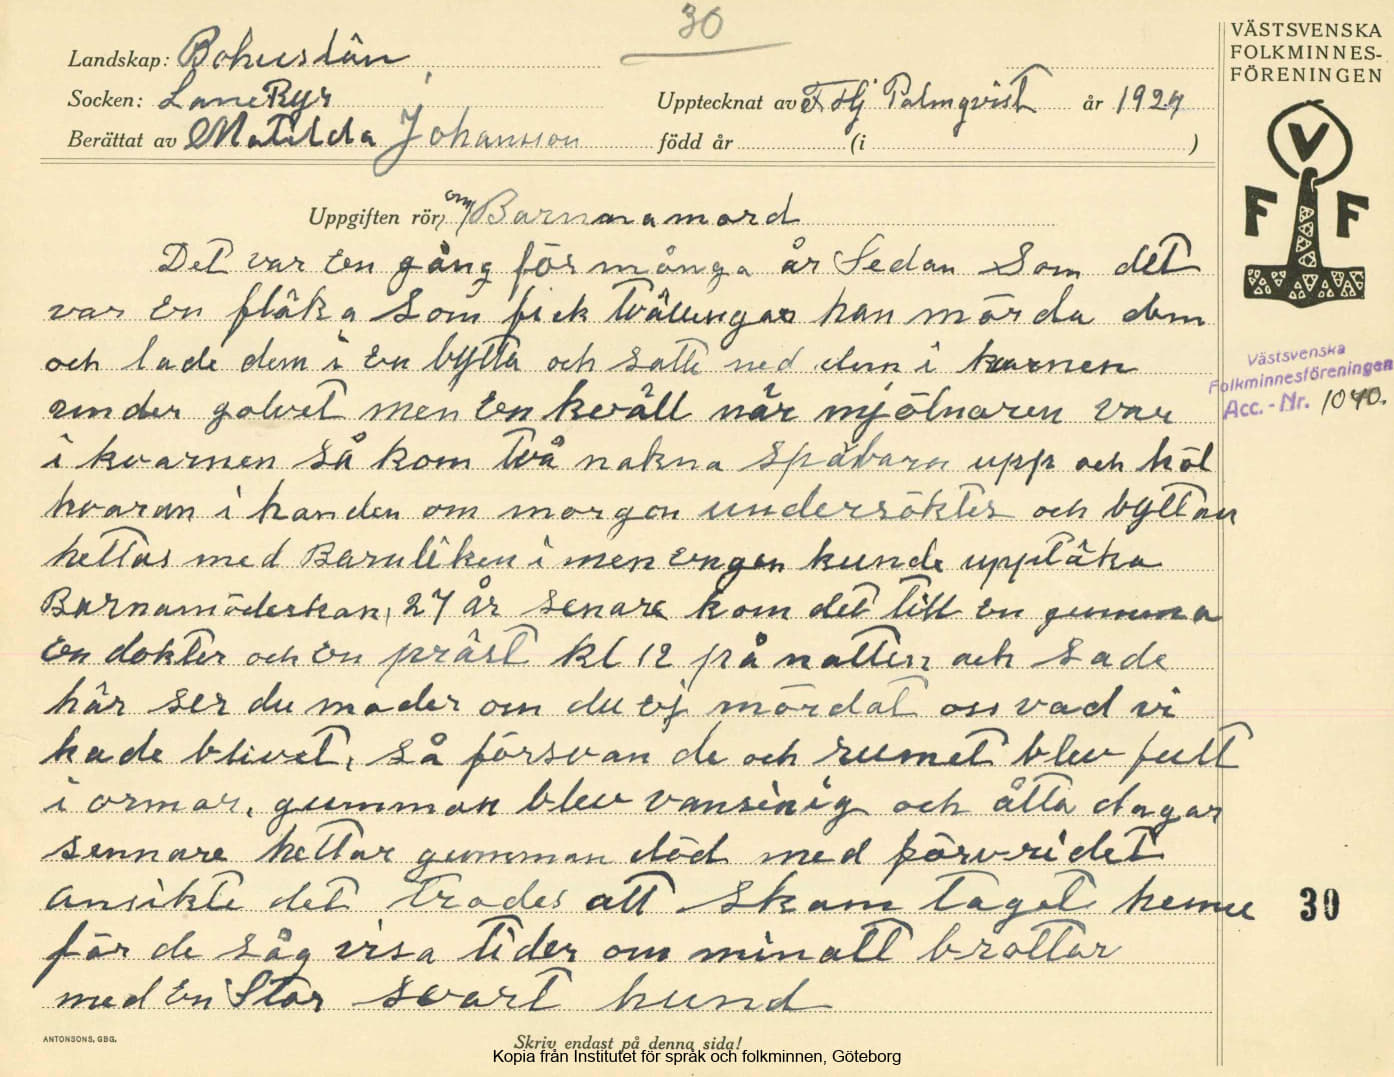 30
VÄSTSVENSKA
FOLKMINNES-
FÖRENINGEN
Landskap: Bohuslän
Socken: LaneRyr
Upptecknat av Hj Palmqvist år 1927
Berättat av Matilda Johansson född år (i )
V
F F
Uppgiften rör, om Barnamord
Det var En gång för många år Sedan Som det
var En flåka Som fick tvållingar han mörda dem
och lade dem i En bytta och satte ned dem i kvarnen
under golvet men En kväll når mjölnaren var
i kvarnen så kom två nakna spåbarn upp och höl
hvaran i handen om morgon undersöktes och byttan
hettas med Barnliken i men Engen kunde upptåka
Barnamöderskan, 27 år senare kom det till En gumma
En dokter och En pråst kl 12 på natten och Sade
hår ser du moder om du Ej mördat oss vad vi
hade blivet, så försvan de och rumet blev fult
i ormar, gumman blev vansinig och åtta dagar
sennare hettar gumman död med förvridet
ansikte det trodes att skam taget henne
för de såg visa tider om minatt brottar
med En Stor svart hund
Västsvenska
Folkminnesföreningen
Acc. - Nr. 1040.
30
ANTONSONS, GBG.
Skriv endast på denna sida!
Kopia från Institutet för språk och folkminnen, Göteborg